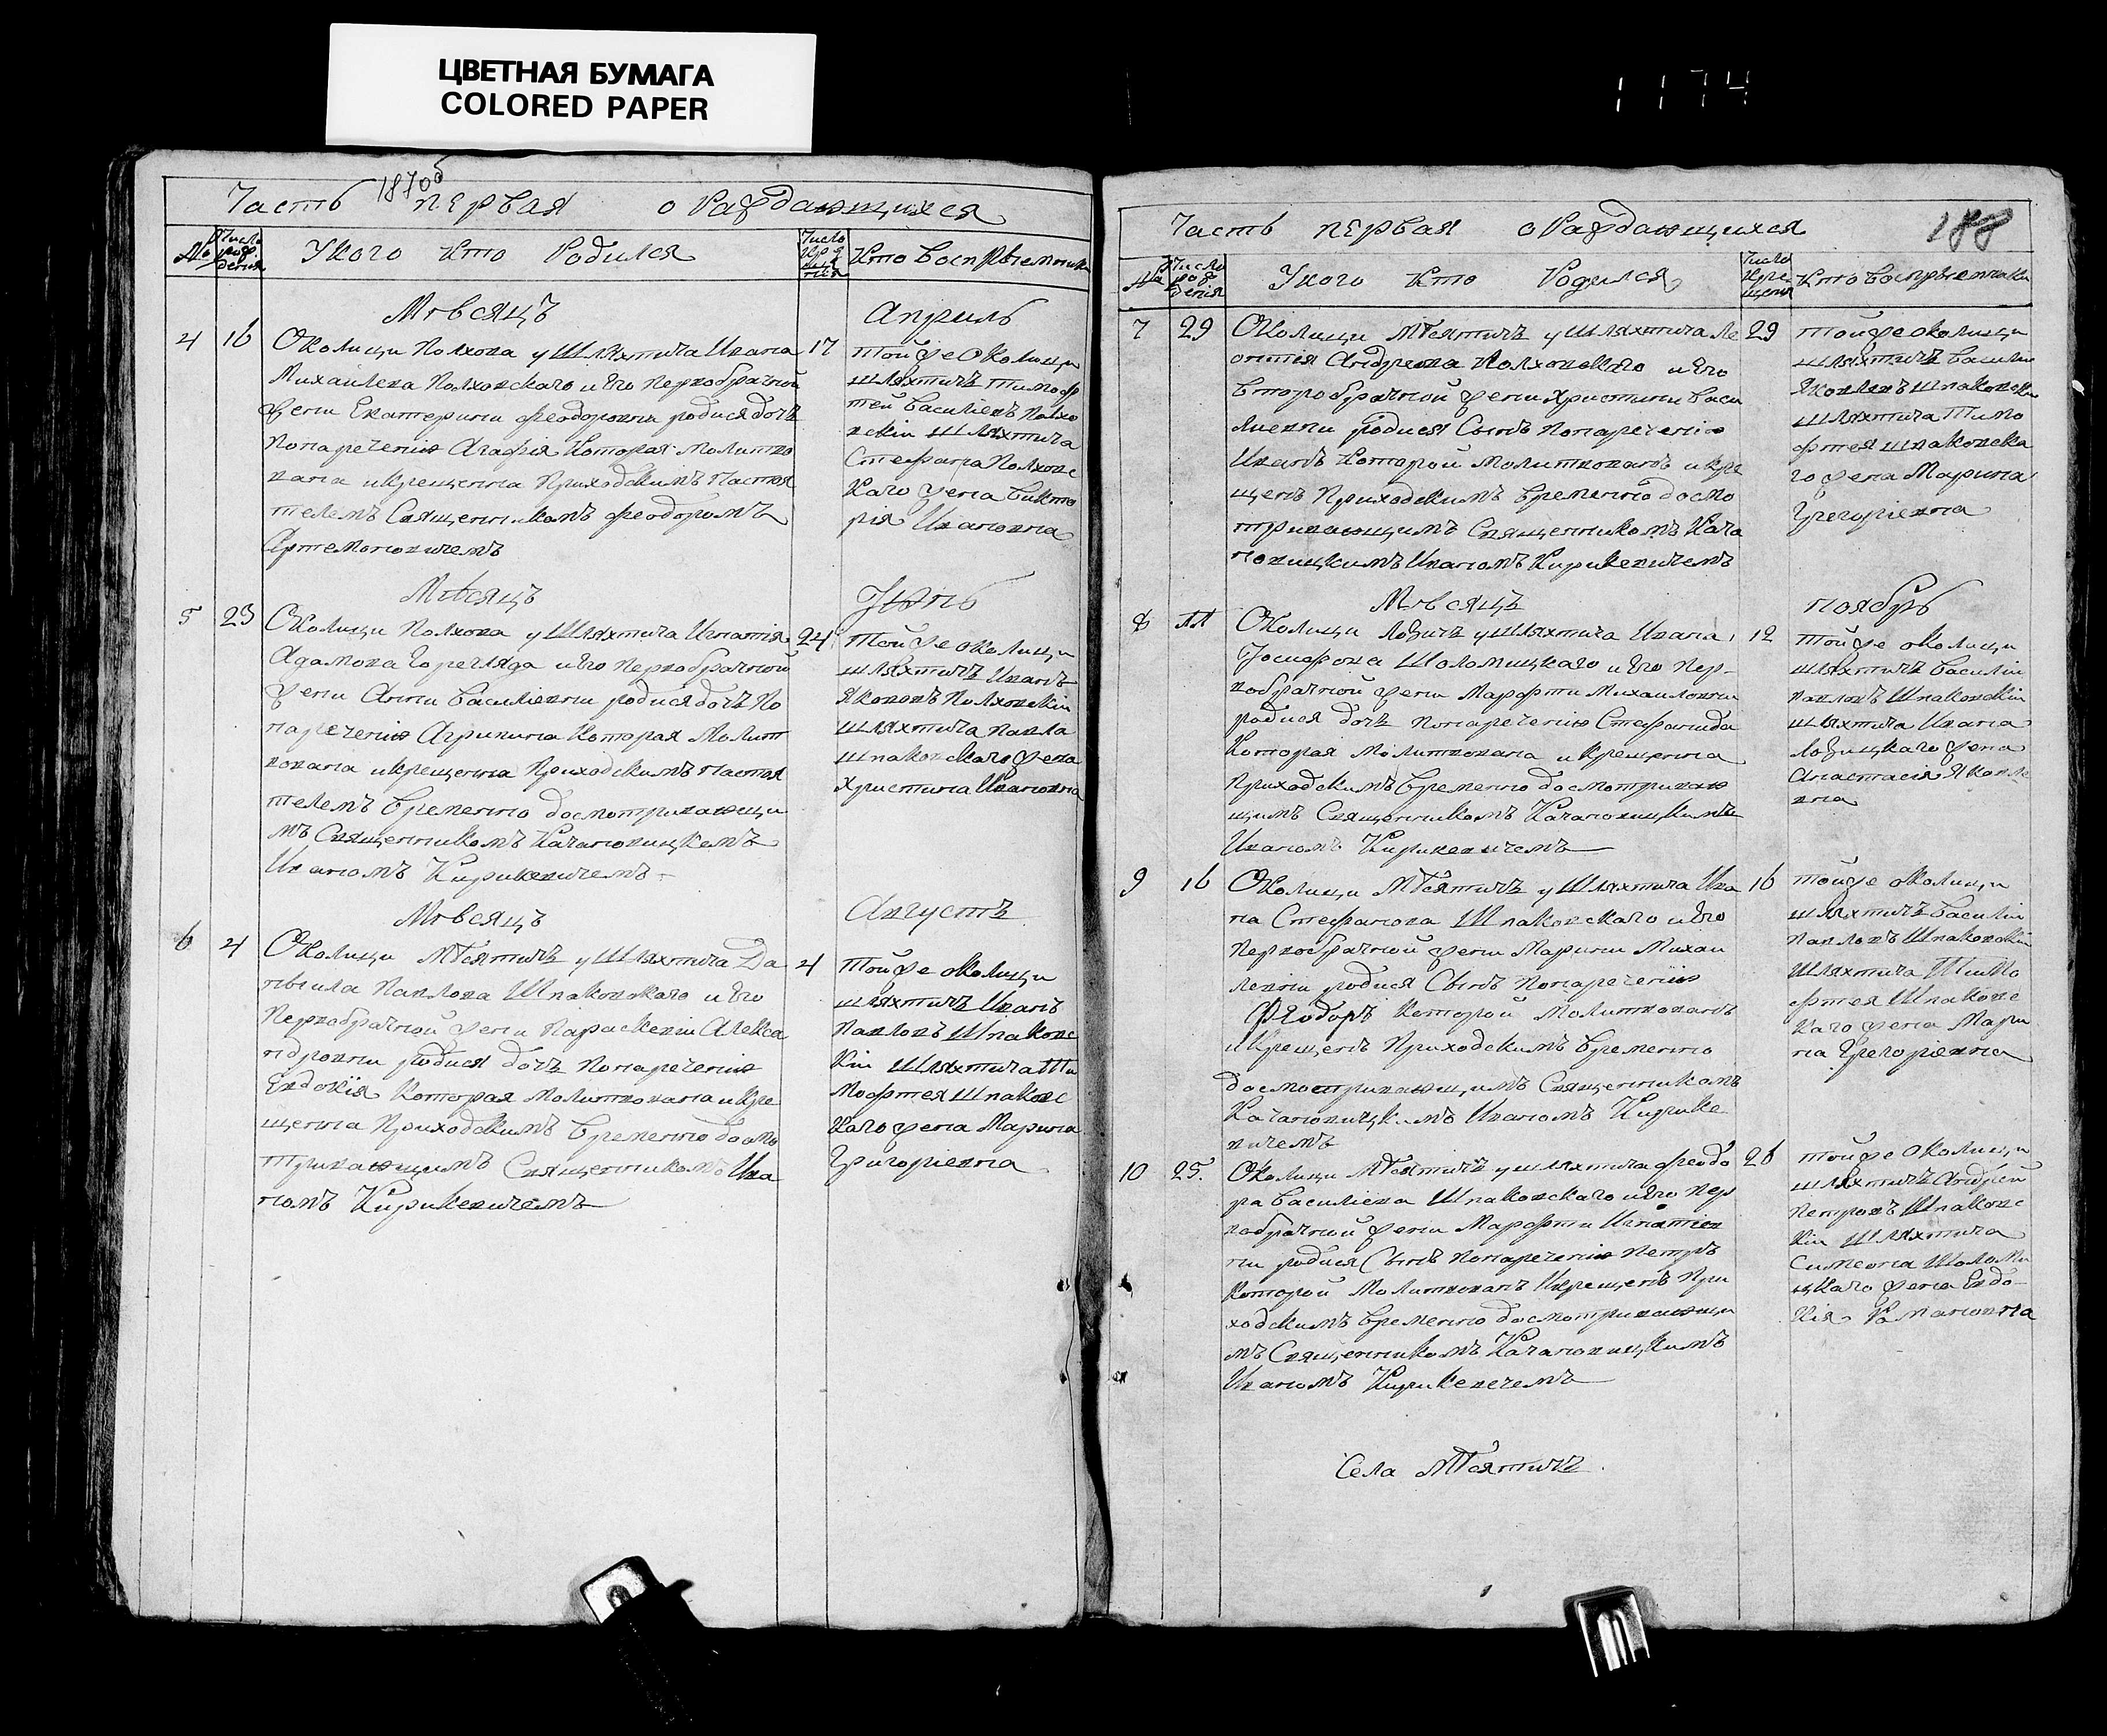 ЦВЕТНАЯ БУМАГА
COLORED PAPER
1174
Часть первая о Раждающихся
188
№ Число рождения У кого кто Родился Число крещения Кто Восприемники
Мѣсяцъ Апрель
4 16 Околицы Полхова у Шляхтича Ивана 17
Михаилева Полховскаго и Его первобрачной
жены Екатерины Феодоровны родися дочь
по наречению Агафия которая Молитво
вана и крещенна Приходскимъ Настоя
телемъ Священникомъ Феодоромъ
Артемоновичемъ
той же Околицы
шляхтичъ Тимоф
тей Василіевъ Полхо
вскіи шляхтича
Стефана Полховс
каго жена Викто
рия Ивановна
Мѣсяцъ Іюнь
5 23 Околицы Полхова у Шляхтича Игнатія 24
Адамова Горегляда и Его первобрачной
жены Анны Василіевны родися дочь по
наречению Агрипина которая Молит
вована и крещенна Приходскимъ Настоя
телемъ временно досмотривающи
мъ Священникомъ Качановицкемъ
Иваномъ Кирикевичемъ
той же околицы
шляхтичъ Иванъ
Яковъ Полховскіи
шляхтича Павла
Шпаковскаго жена
Христина Ивановна
Мѣсяцъ Августъ
6 4 Околицы Мѣсятичъ у Шляхтича Да 4
нѣила Павлова Шпаковскаго и Его
первобрачной жены Параскевіи Алекса
ндровны родися дочь по наречению
Евдокія которая Молитвована и кре
щенна Приходскимъ временно досмо
тривающимъ Священникомъ Ива
номъ Кирикевичемъ
той же околицы
шляхтичъ Иванъ
Павловъ Шпаковс
кіи шляхтича Ти
мофтея Шпаковс
каго жена Марина
Григоріевна
Часть первая о Раждающихся
№ Число рождения У кого кто Родился Число крещения Кто Восприемники
7 29 Околицы Мѣсятичъ у Шляхтича Ле 29
онтія Андреева Полховскаго и Его
второбрачной жены Христины Васи
лиевны родися Сынъ по наречению
Иванъ которой Молитвованъ и кре
щенъ Приходскимъ временно досмо
тривающимъ Священникомъ Кача
новицкимъ Иваномъ Кирикевичемъ
той же околицы
шляхтичъ Василіи
Яковлевъ Шпаковски
шляхтича Тимо
фтея Шпаковска
го жена Марина
Грегоріевна
Мѣсяцъ Ноябрь
8 11 Околицы Ловичъ у Шляхтича Ивана 12
Іосифова Шоломицкаго и Его пер
вобрачной жены Марфты Михаиловны
родися дочь по наречению Стефанида
которая Молитвована и крещенна
Приходскимъ временно досмотриваю
щимъ Священникомъ Качановицкимъ
Иваномъ Кирикевичемъ
той же околицы
шляхтичъ Василіи
Павловъ Шпаковскіи
шляхтича Ивана
жена
Анастасія Яковле
вна
9 16 Околицы Мѣсятичъ у Шляхтича Ива 16
на Стефанова Шпаковскаго и Его
первобрачной жены Марины Михаи
левны родися Сынъ по наречению
Феодоръ которой Молитвованъ
и крещенъ Приходскимъ временно
досмотривающимъ Священникомъ
Качановицкимъ Иваномъ Кирике
вичемъ
той же околицы
шляхтичъ Василіи
Павловъ Шпаковскіи
шляхтича Тимо
фтея Шпаковс
каго жена Мари
на Грегоріевна
10 25. Околицы Мѣсятичъ у шляхтича Феодо 26
ра Василіева Шпаковскаго и Его пер
вобрачной жены Марфты Игнатіев
ны родися Сынъ по наречению Петръ
которой Молитвованъ и крещенъ При
ходскимъ временно досмотривающи
мъ Священникомъ Качановицкимъ
Иваномъ Кирикевечемъ
той же околицы
шляхтичъ Андреи
Петровъ Шпаковс
кіи шляхтича
Симеона Шоломи
цкаго жена Евдо
кія Романовна
Села Мѣсятичъ.